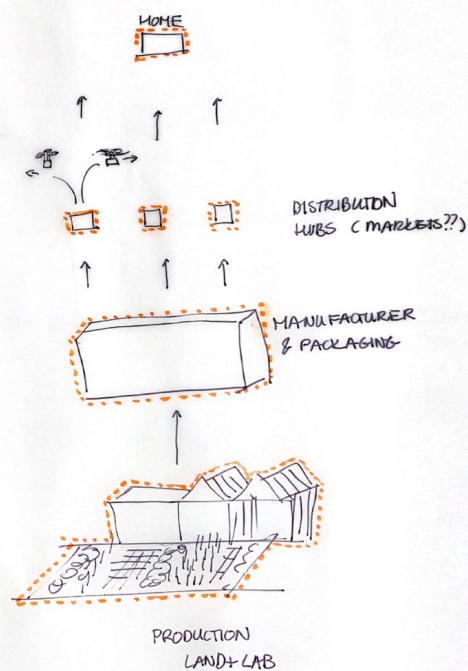 HOME
DISTRIBUTION
HUBS (MARKETS??)
MANUFACTURER
& PACKAGING
PRODUCTION
LAND+ LAB